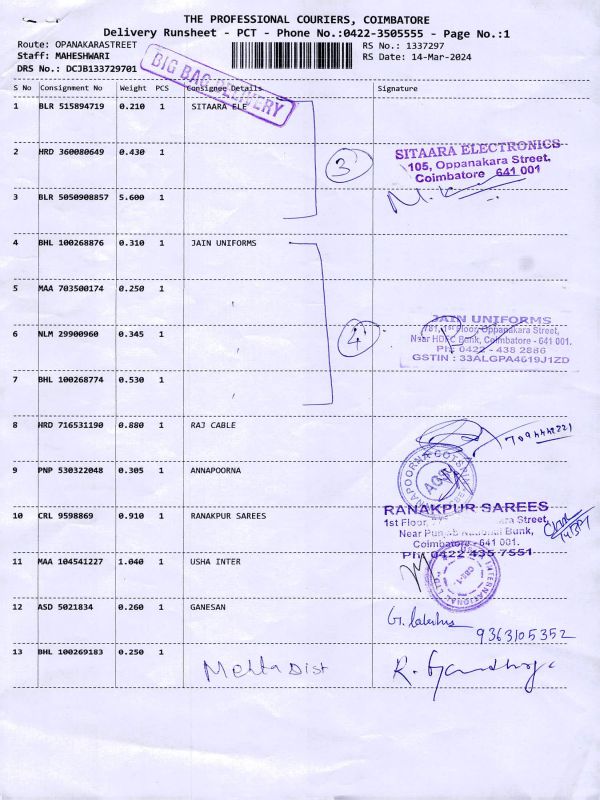 THE PROFESSIONAL COURIERS, COIMBATORE
Delivery Runsheet - PCT - Phone No.:0422-3505555 - Page No.:1
Route: OPANAKARASTREET
RS No.: 1337297
Staff: MAHESHWARI
RS Date: 14-Mar-2024
DRS No.: DCJB133729701
BIG BAG DELIVERY
S No Consignment No Weight PCS Consignee Details Signature
1 BLR 515894719 0.210 1 SITAARA ELE
2 HRD 360080649 0.430 1
3
SITAARA ELECTRONICS
105, Oppanakara Street,
Coimbatore 641 001
3 BLR 5050908857 5.600 1
4 BHL 100268876 0.310 1 JAIN UNIFORMS
5 MAA 703500174 0.250 1
6 NLM 29900960 0.345 1
4
JAIN UNIFORMS
781, 1st Floor, Oppanakara Street,
Near HDFC Bank, Coimbatore - 641 001.
PH: 0422 - 438 2866
GSTIN : 33ALGPA4619J1ZD
7 BHL 100268774 0.530 1
8 HRD 716531190 0.880 1 RAJ CABLE
9 PNP 530322048 0.305 1 ANNAPOORNA
10 CRL 9598869 0.910 1 RANAKPUR SAREES
RANAKPUR SAREES
1st Floor, Street,
Near Punjab National Bank,
Coimbatore - 641 001.
PH: 0422 435 7551
11 MAA 104541227 1.040 1 USHA INTER
INTERNATIONAL LTD
12 ASD 5021834 0.260 1 GANESAN
9363105352
13 BHL 100269183 0.250 1 Mehta Dist